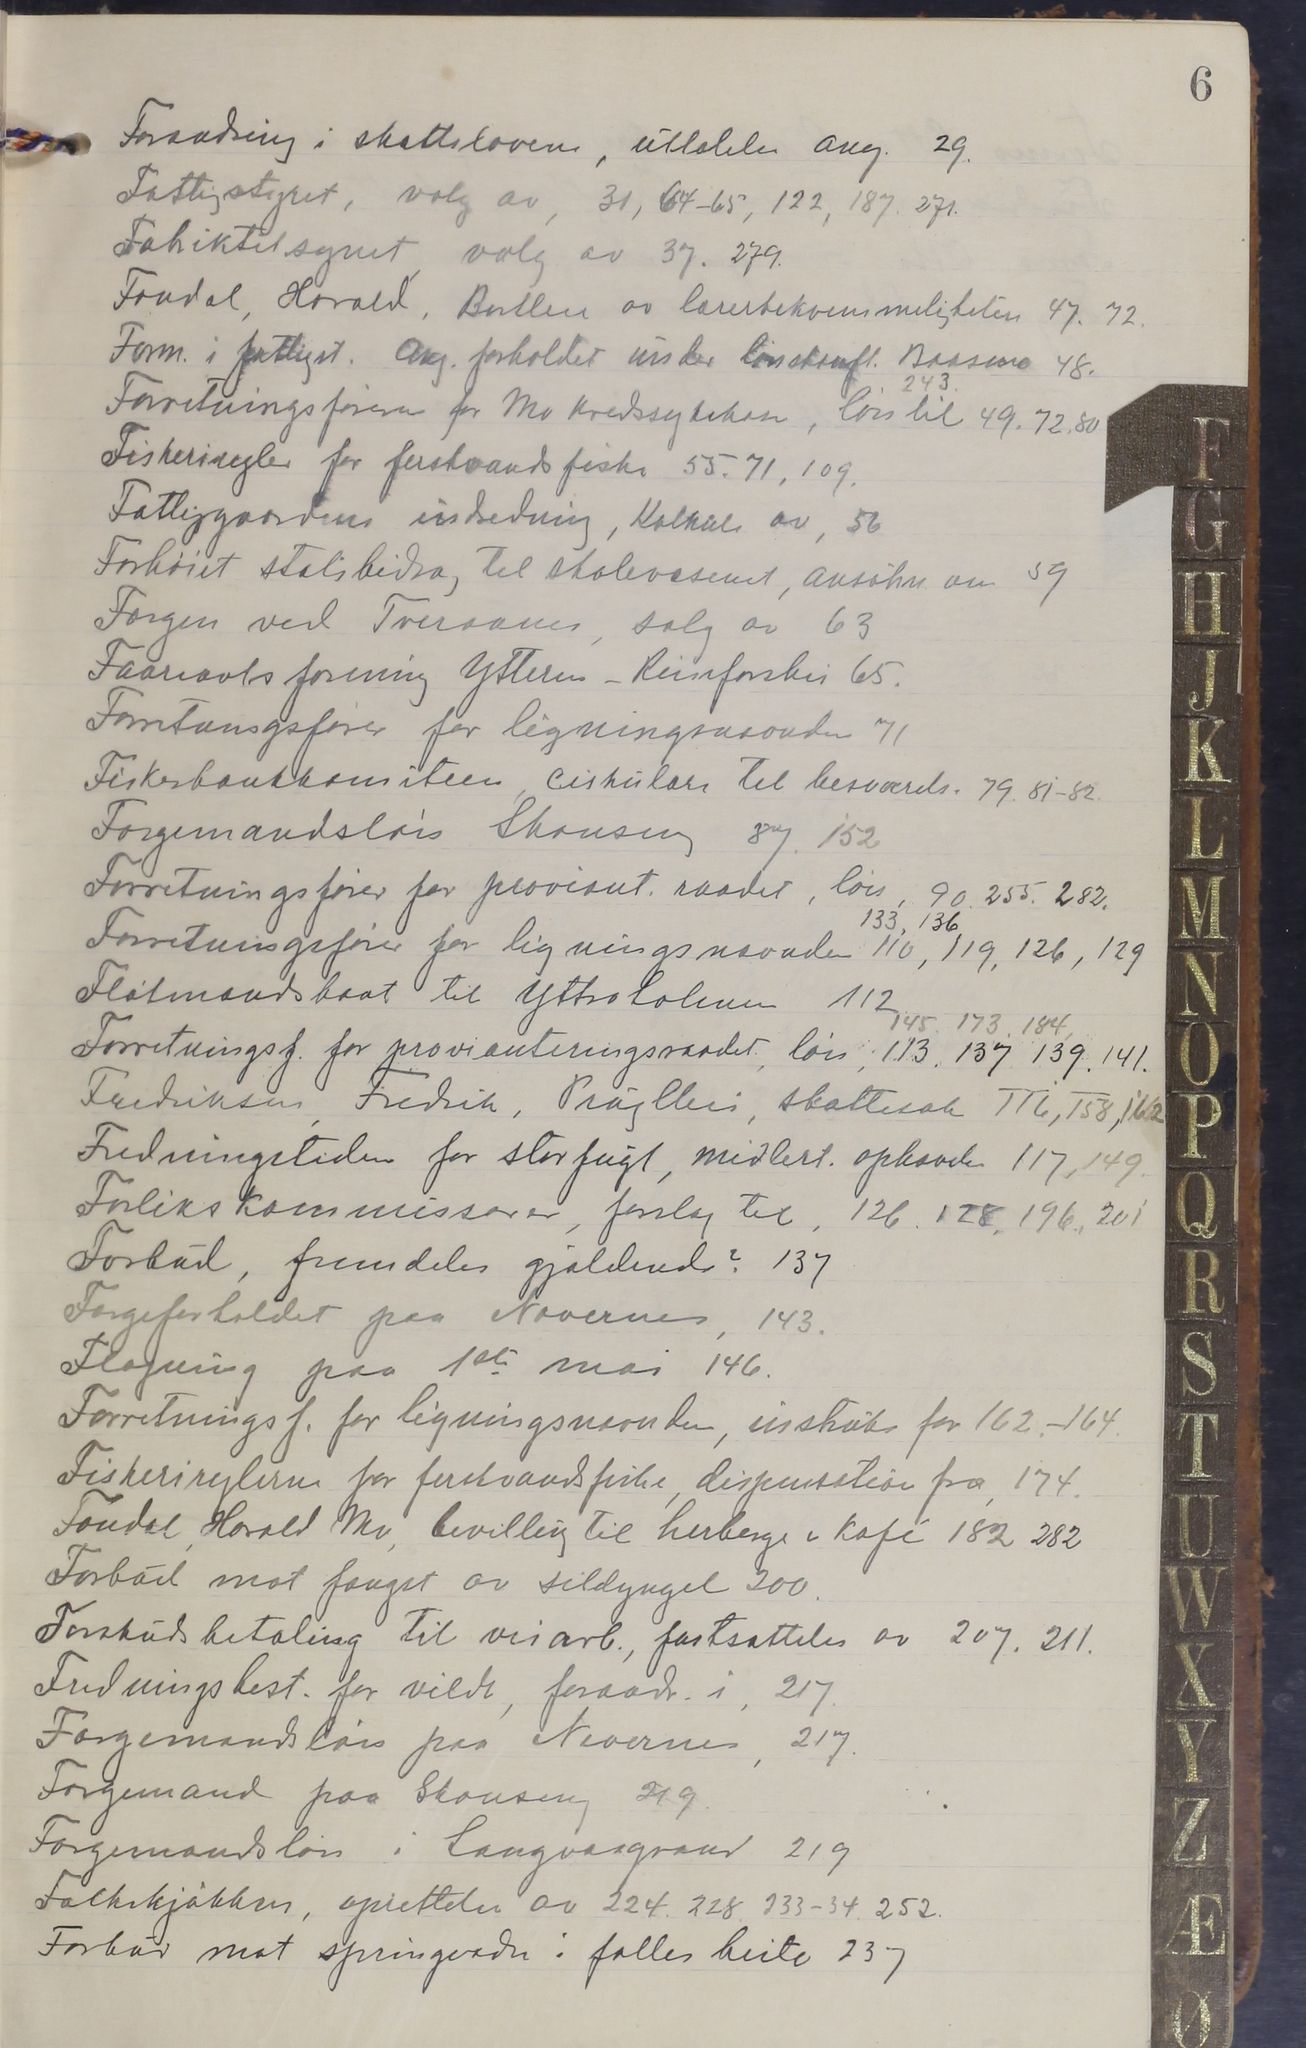 6
Forandring i skatteloven, uttalelse ang. 29.
Fattigstyret, valg av, 31, 64-65, 122, 187. 271.
Fabriktilsynet, valg av 37. 279.
Fondal, Harald, Bortleie av lærerbekvemmeligheten 47. 72.
Form. i fattigst. Ang. forholdet under Baasmo 48.
243.
Forretningsfører for Mo kredssykehus, løn til 49. 72. 80
Fiskeriregler for ferskvandsfiske 55. 71, 109.
Fattiggaardens indredning, Kalkule av, 56
Forhøiet statsbidrag til skolevæsenet, ansøkn. om 59
Færgen ved Tveraanes, salg av 63
Faareavlsforening Ytteren - Reinforshei 65.
Forretningsfører for ligningsnævnden 71
Fiskerbankkomiteen, cirkulære til besvarels. 79. 81-82.
Færgemandsløn Skonseng 87. 152
Forretningsfører for proviant. raadet, løn, 90. 255. 282.
133, 136
Forretningsfører for ligningsnævnden 110, 119, 126, 129
Fløtmandsbaat til Yttraholmen 112
145. 173. 184,
Forretningsf. for provianteringsraadet, løn, 113. 137. 139. 141.
Fredriksen, Fredrik, skattesak 116, 158, 162
Fredningstiden for storfugl, midlert. ophævelse 117, 149.
Forlikskommissærer, forslag til, 126. 128, 196, 201
Forbud, fremdeles gjældende? 137
Færgeforholdet paa Nævernes, 143.
Flagning paa 1ste mai 146.
Forretningsf. for ligningsnævnden, instruks for 162.-164.
Fiskerireglerne for ferskvandsfiske, dispensation fra, 174.
Fondal, Harald Mo, bevilling til herberge & kafé 182 282
Forbud mot fangst av sildyngel 200.
Forskudsbetaling til veiarb., fastsættelse av 207. 211.
Fredningsbest. for vildt, forandr. i, 217.
Færgemandsløn paa Nævernes, 217.
Færgemand paa Skonseng 219.
Færgemandsløn i Langvasgrand 219
Folkekjøkken, oprettelse av 224. 228. 233-34. 252.
Forbud mot springvædre i fælles beite 237
F
G
H
J
K
L
M
N
O
P
Q
R
S
T
U
W
X
Y
Z
Æ
Ø